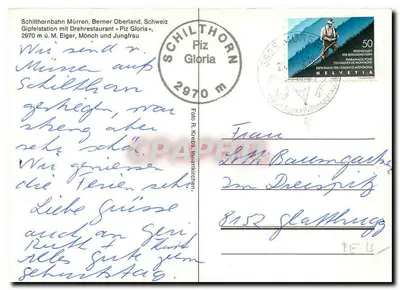 Schilthornbahn Mürren, Berner Oberland, Schweiz
Gipfelstation mit Drehrestaurant «Piz Gloria»,
2970 m ü. M. Eiger, Mönch und Jungfrau
Wir sind v.
Mürren aufs
Schilthorn
gestiegen, war
streng aber
sehr schön.
Wir geniessen
die Ferien sehr
Liebe Grüsse
auch an
Ruth +
Alles Gute zum
Geburtstag.
SCHILTHORN
Piz
Gloria
2970 m
Foto R. Krebs,
50
HELVETIA
Frau
Baumgartner
Im Dreispitz
8152 Glattbrugg